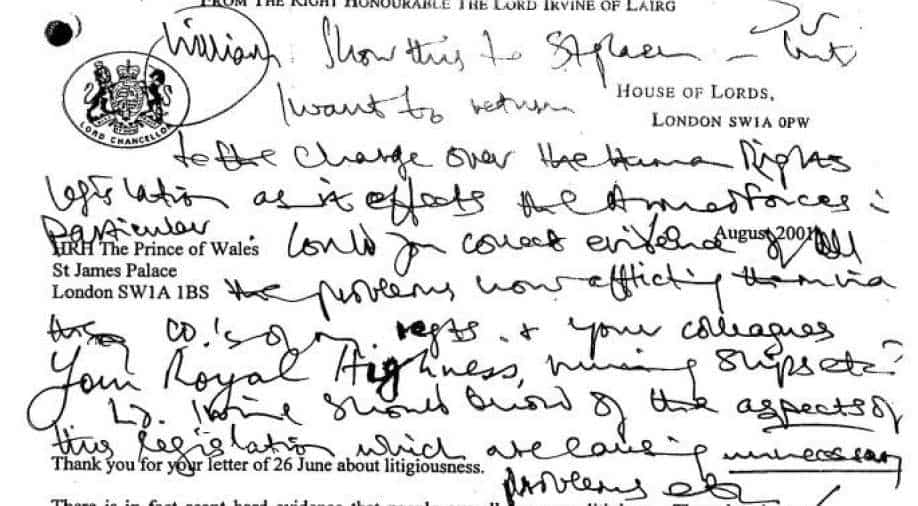 FROM THE RIGHT HONOURABLE THE LORD IRVINE OF LAIRG
William: Show this to Stephen – but
I want to return
HOUSE OF LORDS,
LONDON SW1A 0PW
LORD CHANCELLOR
to the charge over the Human Rights
legislation as it effects the Armed Forces in
particular
HRH The Prince of Wales
August 2001
Could you collect evidence of all
St James Palace
London SW1A 1BS
the problems now afflicting them via
the CO.'s of my regts. + your colleagues
Your Royal Highness,
running ships etc?
Ld. Irvine should know of the aspects of
this legislation which are causing unnecessary
Thank you for your letter of 26 June about litigiousness.
problems etc
There is in fact scant hard evidence that people